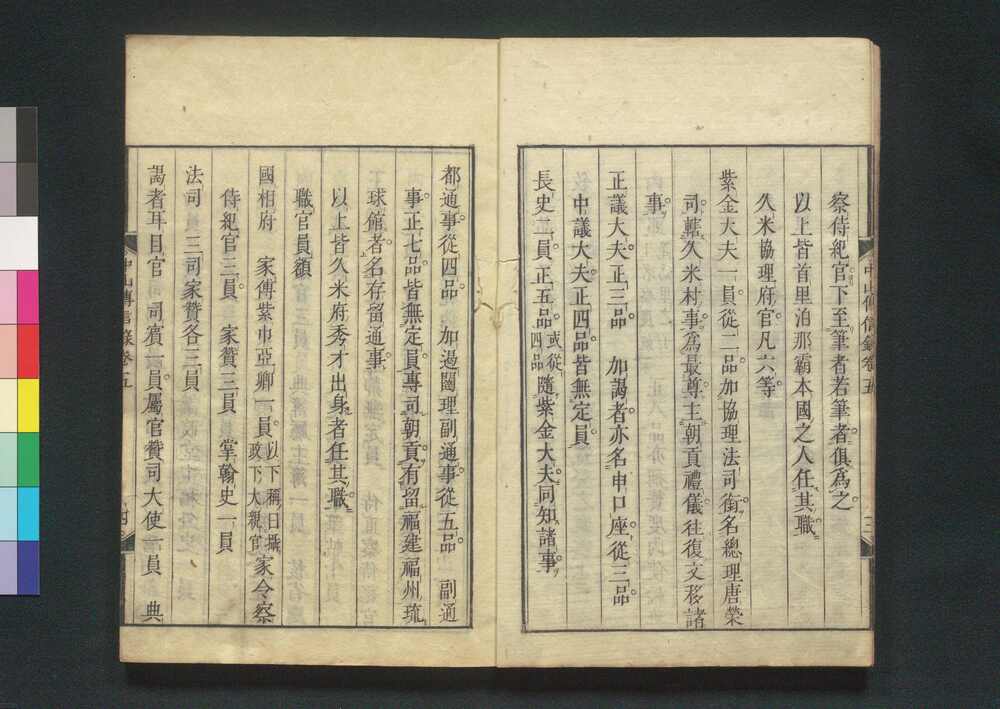 察侍紀官下至筆者若筆者俱為之
以上皆首里泊那霸本國之人任其職
久米協理府官凡六等
紫金大夫一員從二品加協理法司銜名總理唐榮
司轄久米村事為最尊主朝貢禮儀往復文移諸
事
正議大夫正三品 加謁者亦名申口座從三品
中議大夫正四品皆無定員
長史二員正五品或從四品隨紫金大夫同知諸事
都通事從四品 加遏闥理副通事從五品 副通
事正七品皆無定員專司朝貢有留福建福州琉
球館者名存留通事
以上皆久米府秀才出身者任其職
職官員額
國相府 家傅紫巾亞卿一員以下稱曰城政下大親官家令察
侍紀官三員 家贊三員 掌翰史一員
法司 三司家贊各三員
謁者耳目官 司賓一員屬官贊司大使一員 典
中山傳信錄卷五